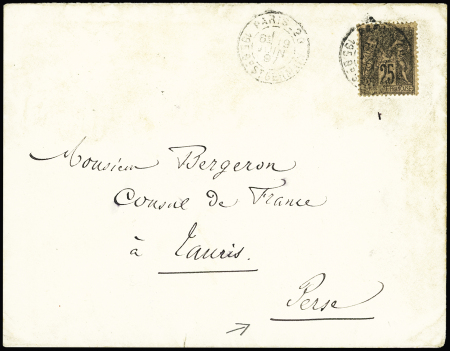 PARIS
25
Monsieur Bergeron
Consul de France
à Tauris.
Perse